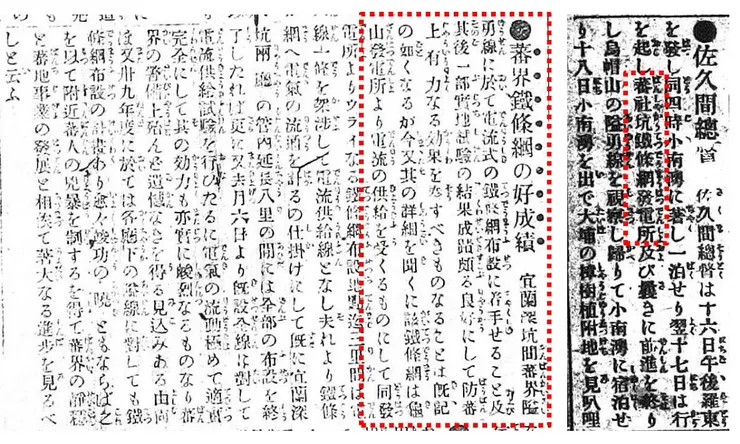 ●佐久間總督　佐久間總督は十六日午後羅東
を發し同四時小南澳に著し一泊せり翌十七日は行
を起し蕃社坑鐵條網發電所及び曩きに前進を終り
し鳥帽山の隘勇線を視察し歸りて小南澳に宿泊せ
り十八日小南澳を出で大埔の樟樹植附地を見叭哩
蕃界鐵條網の好成績　宜蘭深坑間蕃界隘
勇線に於て電流式の鐵條網布設に着手せること及
其後一部實地試驗の結果成蹟頗る良好にして防蕃
上有力なる効果を奏すべきものなることは既記
の如くなるが今又其の詳細を聞くに該鐵條網は龜
山發電所より電流の供給を受くるものにして同發
電所よりウライなる鐵條網布設起點迄二里間は
線一條を架渉して電流供給線となし夫れより鐵條
網へ電氣の流通を計るの仕掛けにして既に宜蘭深
坑兩廳の管内延長八里の間には全部の布設を終
了したれば更に又去月六日より既設全線に對して
電流供給試驗を行ひたるに電氣の流動極めて適實
完全にして其の効力も亦實に峻烈なるものなり蕃
界の警備上殆んど遺憾なきを得る見込みある由尚
ほ又卅九年度に於ては各廳下の蕃線に對しても鐵
條網布設の計畫あり愈々竣功の曉ともならば之
を以て附近蕃人の兇暴を制するを得て蕃界の靜謐
と蕃地事業の發展と相俟て著大なる進歩を見るべ
しと云ふ